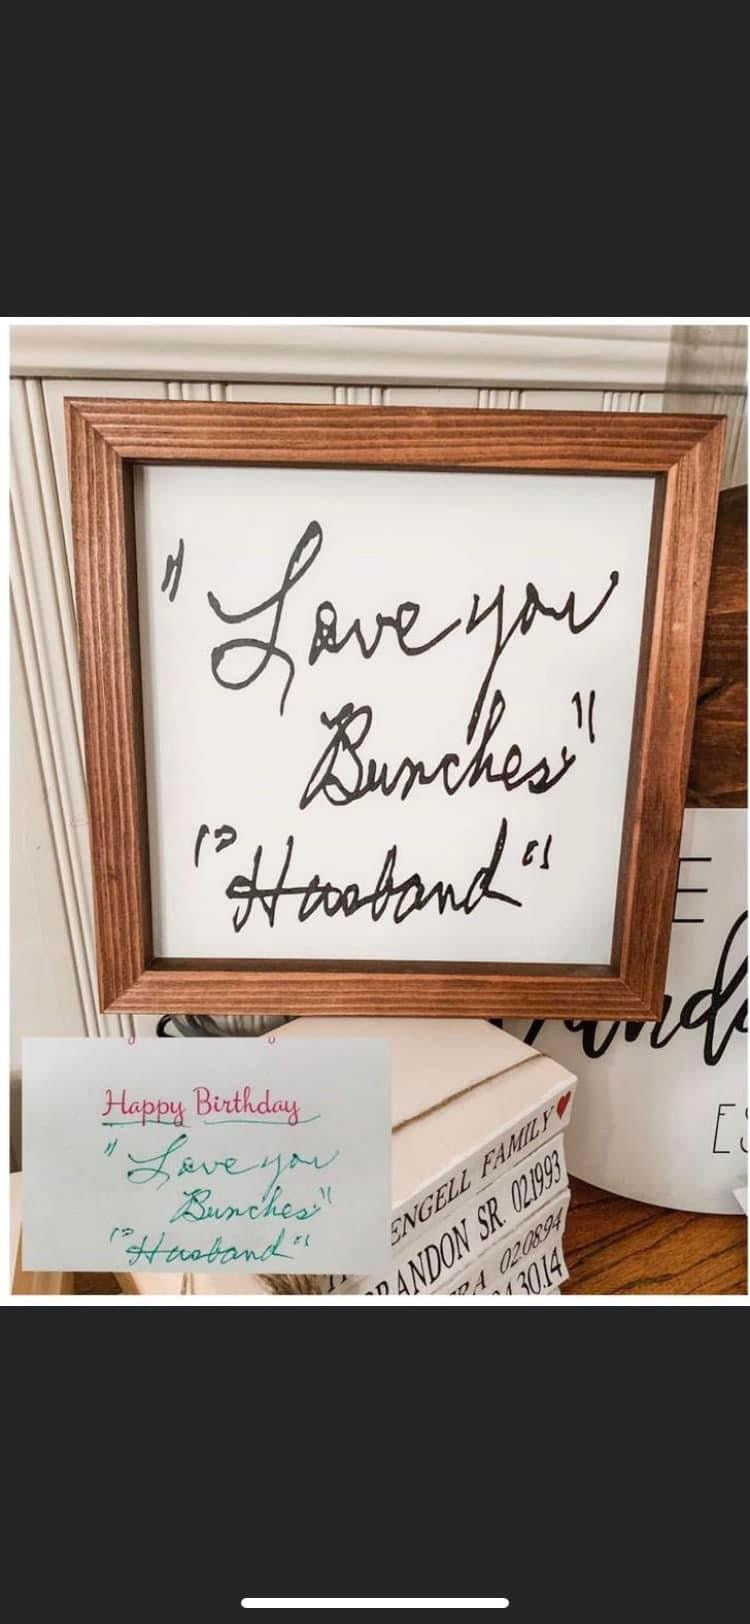 "Love you
Bunches"
"Husband"
Happy Birthday
"Love you
Bunches"
"Husband"
ENGELL FAMILY♥
BRANDON SR. 02.19.93
02.08.94
30.14